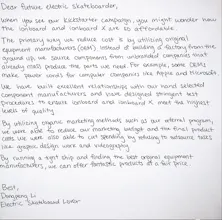 Dear future electric skateboarder,
When you see our Kickstarter campaign, you might wonder how
the ionboard and ionboard X are so affordable.
The primary way we reduce cost is by utilizing original
equipment manufacturers (OEM). Instead of building a factory from the
ground up, we source components from unbranded companies that
already mass produce the parts we need. For example, some OEMs
make power cords for computer companies like Apple and Microsoft.
We have built excellent relationships with our hand selected
component manufacturers and have designed stringent test
procedures to ensure ionboard and ionboard X meet the highest
levels of quality
By utilizing organic marketing methods such as our referral program,
we were able to reduce our marketing budget and the final product
cost. We were also able to cut spending by refusing to outsource tasks
like graphic design work and videography
By running a tight ship and finding the best original equipment
manufacturers, we can offer fantastic products at a fair price
Best,
Dongpeng Li
Electric Skateboard Lover